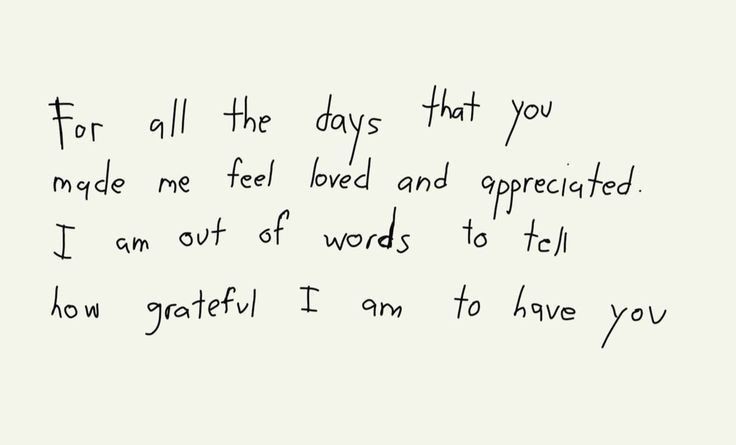 For all the days that you
made me feel loved and appreciated.
I am out of words to tell
how grateful I am to have you